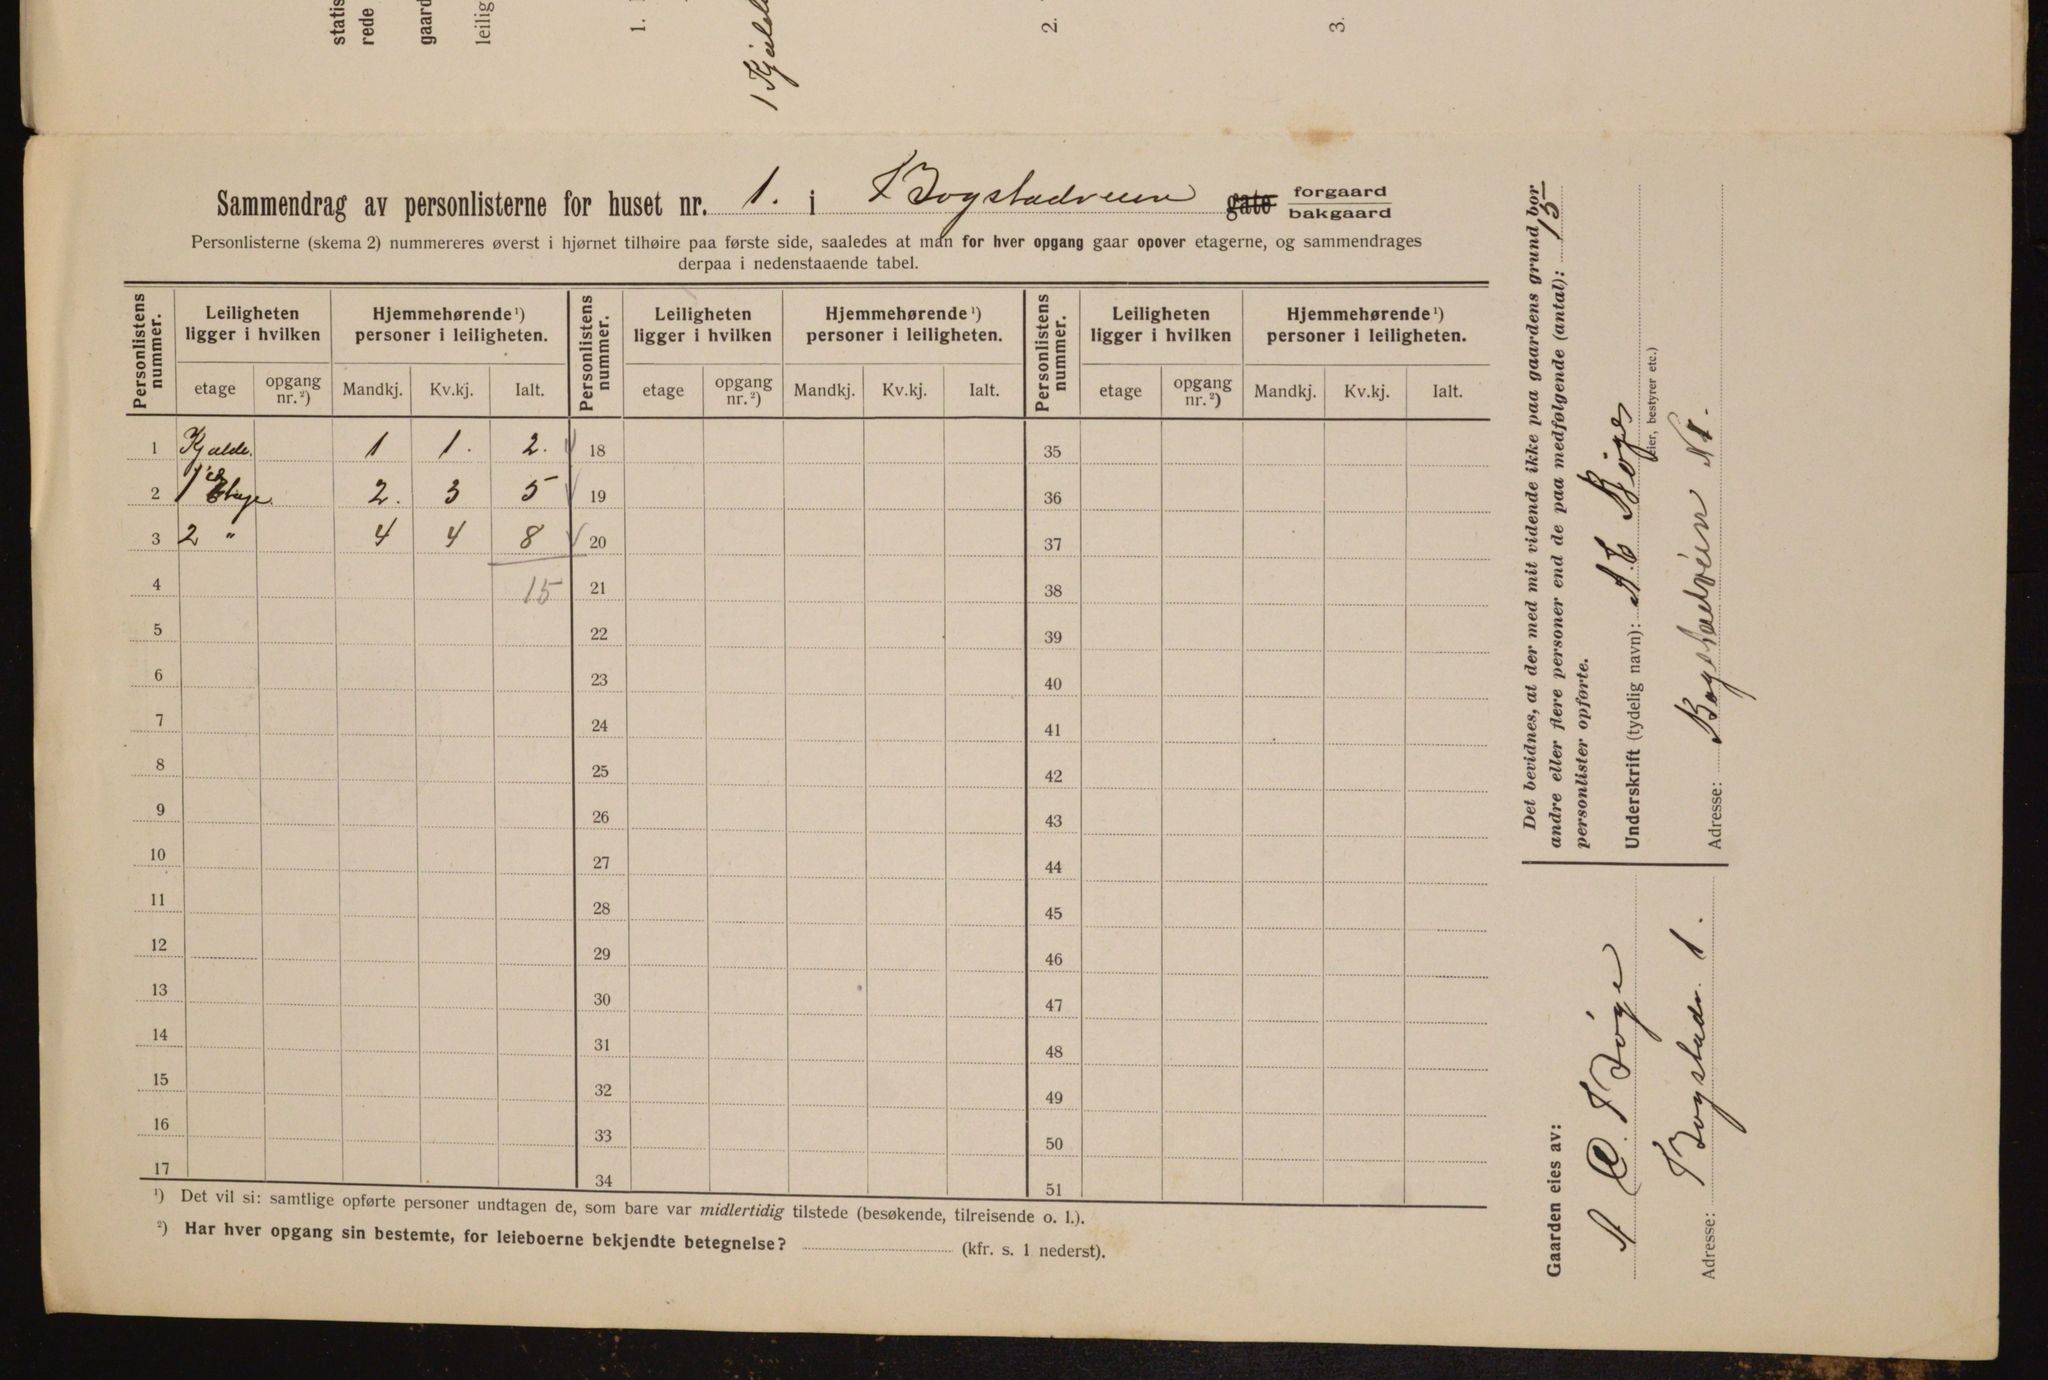 statis
rede
gaard
leilig
1.
1 Kjæld
2.
3.
Sammendrag av personlisterne for huset nr. 1. i Bogstadveien gate forgaard bakgaard
Personlisterne (skema 2) nummereres øverst i hjørnet tilhøire paa første side, saaledes at man for hver opgang gaar opover etagerne, og sammendrages
derpaa i nedenstaaende tabel.
Personlistens nummer. Leiligheten ligger i hvilken Hjemmehørende ¹) personer i leiligheten. Personlistens nummer. Leiligheten ligger i hvilken Hjemmehørende ¹) personer i leiligheten. Personlistens nummer. Leiligheten ligger i hvilken Hjemmehørende ¹) personer i leiligheten.
etage opgang nr. ²) Mandkj. Kv.kj. Ialt. etage opgang nr. ²) Mandkj. Kv.kj. Ialt. etage opgang nr. ²) Mandkj. Kv.kj. Ialt.
1 Kjælde. 1 1. 2. 18 35
2 1 Etage. 2. 3 5 19 36
3 2 " 4 4 8 20 37
4 15 21 38
5 22 39
6 23 40
7 24 41
8 25 42
9 26 43
10 27 44
11 28 45
12 29 46
13 30 47
14 31 48
15 32 49
16 33 50
17 34 51
¹) Det vil si: samtlige opførte personer undtagen de, som bare var midlertidig tilstede (besøkende, tilreisende o. l.).
²) Har hver opgang sin bestemte, for leieboerne bekjendte betegnelse? (kfr. s. 1 nederst).
Det bevidnes, at der med mit vidende ikke paa gaardens grund bor
andre eller flere personer end de paa medfølgende (antal): 15
personlister opførte.
Underskrift (tydelig navn): A. C Bøge
(eier, bestyrer etc.)
Adresse: Bogstadveien N 1.
Gaarden eies av:
A C. Bøge
Adresse: Bogstadv. 1.